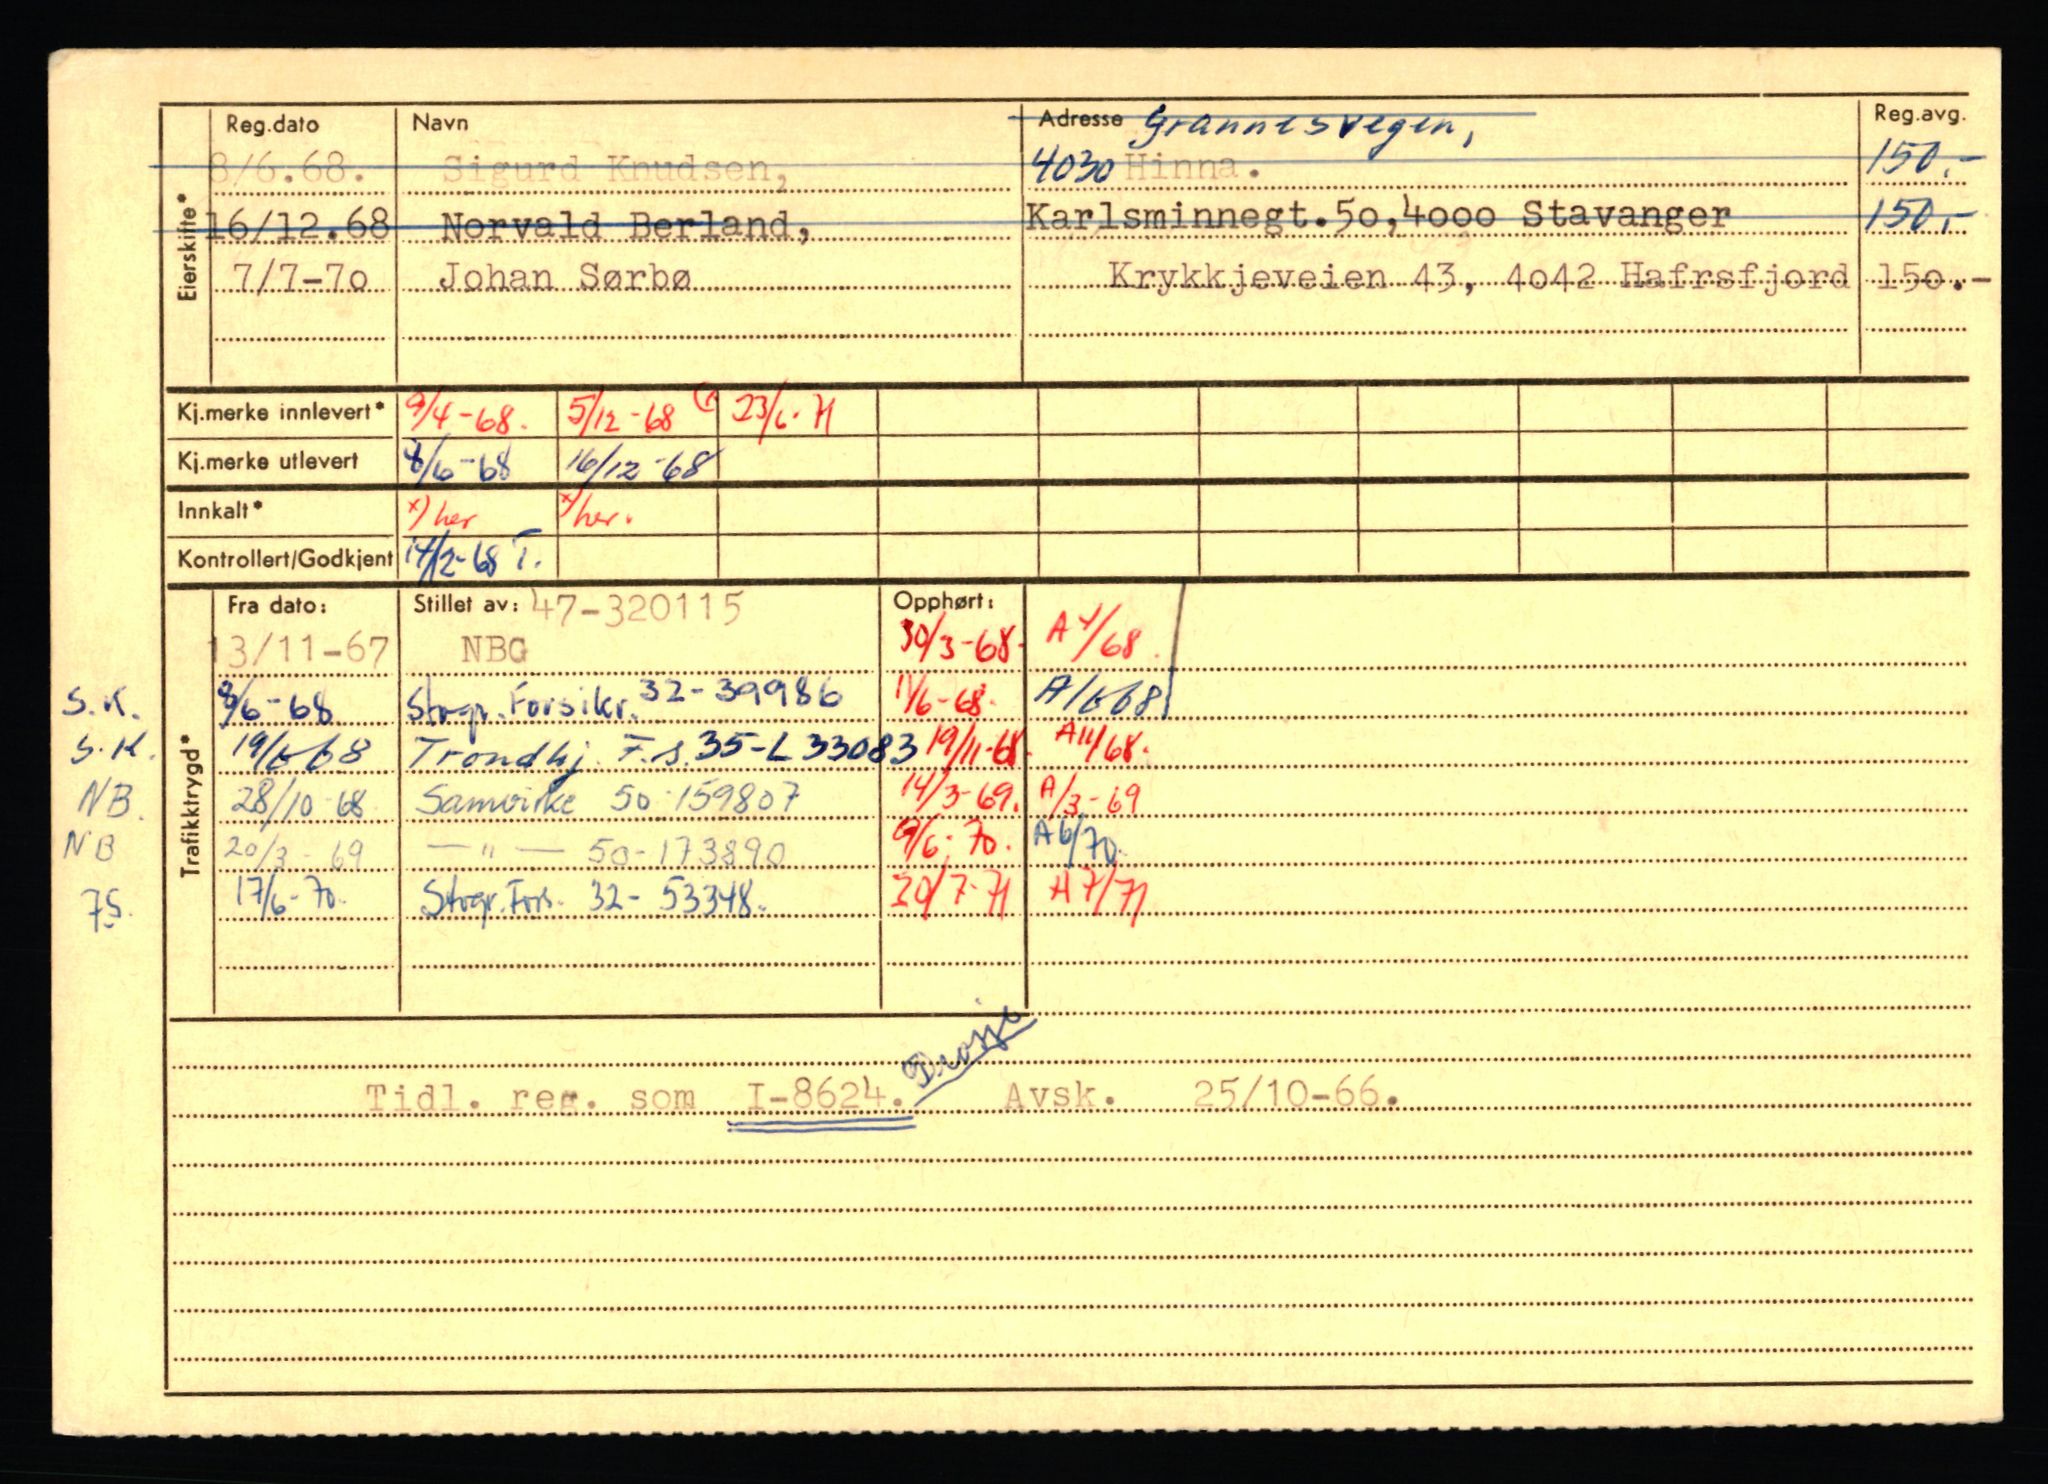 Reg.dato Navn Adresse Grannesvegen, Reg.avg.
8/6.68. Sigurd Knudsen, 4030 Hinna. 150.-
16/12.68 Norvald Berland, Karlsminnegt.50,4000 Stavanger 150,-
7/7-70 Johan Sørbø Krykkjeveien 43, 4042 Hafrsfjord 150.-
Eierskifte*
Kj.merke innlevert* 9/4-68. 5/12-68 23/6-71
Kj.merke utlevert 8/6-68 16/12-68
Innkalt* x) her x) her.
Kontrollert/Godkjent 14/12-68 T.
Trafikktrygd*
Fra dato: Stillet av: 47-320115 Opphørt:
13/11-67 NBG 30/3-68- A 4/68.
S.K. 8/6-68 Stvgr. Forsikr. 32-39986 11/6-68. A/6 68
S.K. 19/6 68 Trondhj. F.s. 35-L 33083 19/11-68. A11/68.
NB. 28/10-68 Samvirke 50-159807 14/3-69. A/3-69
NB 20/3-69 — " — 50-173890 9/6-70. A 6/70.
JS. 17/6-70. Stvgr. Fors. 32-53348. 20/7-71 A 7/71
Drosje
Tidl. reg. som I-8624. Avsk. 25/10-66.